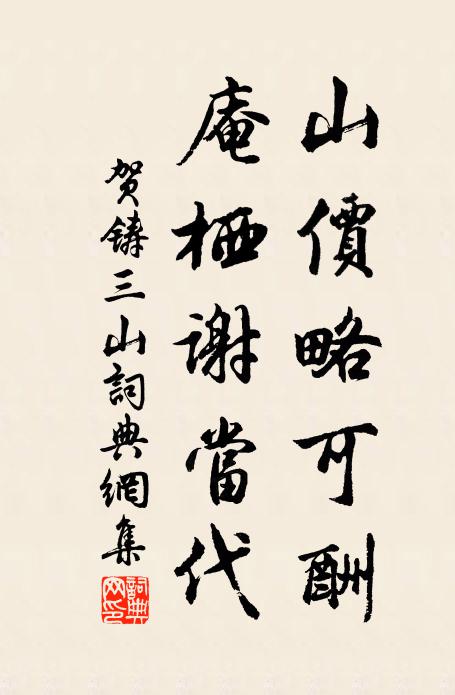 山價略可酬
庵栖謝當代
贺铸三山詞典網集
詞典网印